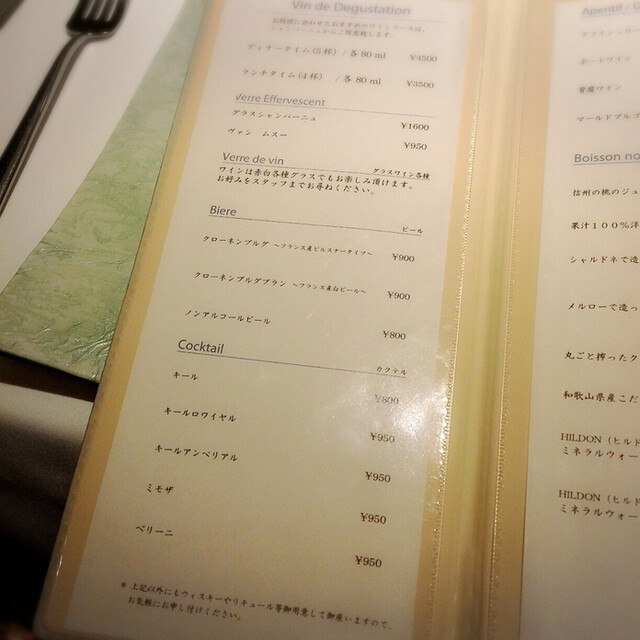 Vin de Degustation
お料理に合わせたおすすめのワインコースは、
シャンパーニュからご用意致します。
ディナータイム(5杯) / 各 80 ml ¥4500
ランチタイム(4杯) / 各 80 ml ¥3500
Verre Effervescent
グラスシャンパーニュ ¥1600
ヴァン ムスー ¥950
Verre de vin グラスワイン各種
ワインは赤白各種グラスでもお楽しみ頂けます。
お好みをスタッフまでお尋ねください。
Biere ビール
クローネンブルグ ~フランス産ピルスナータイプ~ ¥900
クローネンブルグブラン ~フランス産白ビール~ ¥900
ノンアルコールビール ¥800
Cocktail カクテル
キール ¥800
キールロワイヤル ¥950
キールアンペリアル ¥950
ミモザ ¥950
ベリーニ ¥950
* 上記以外にもウィスキーやリキュール等御用意して御座いますので、
お気軽にお申し付けください。
Aperitif / D
ドライシェリー
ポートワイン
貴腐ワイン
マールドブルゴ
Boisson no
信州の桃のジュ
果汁100%洋
シャルドネで造
メルローで造っ
丸ごと搾ったク
和歌山県産こだ
HILDON (ヒルド
ミネラルウォー
HILDON (ヒルド
ミネラルウォー